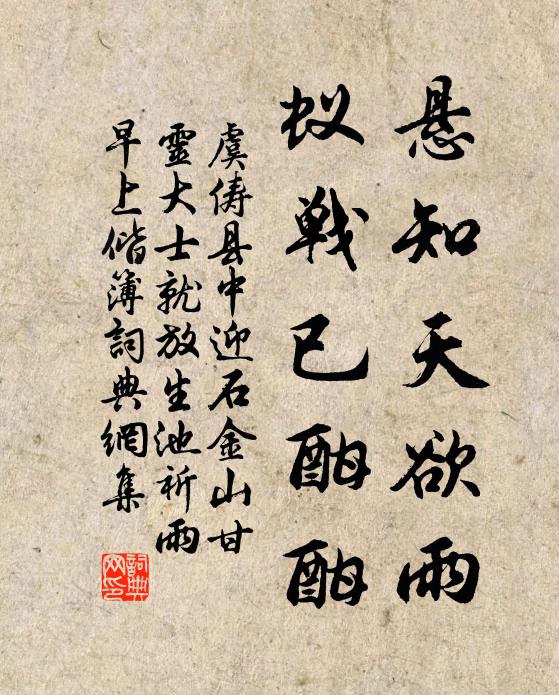 悬知天欲雨
蚁戦已酣酣
虞俦县中迎石金山甘
靈大士就放生池祈雨
早上偕簿詞典網集
詞典
网印